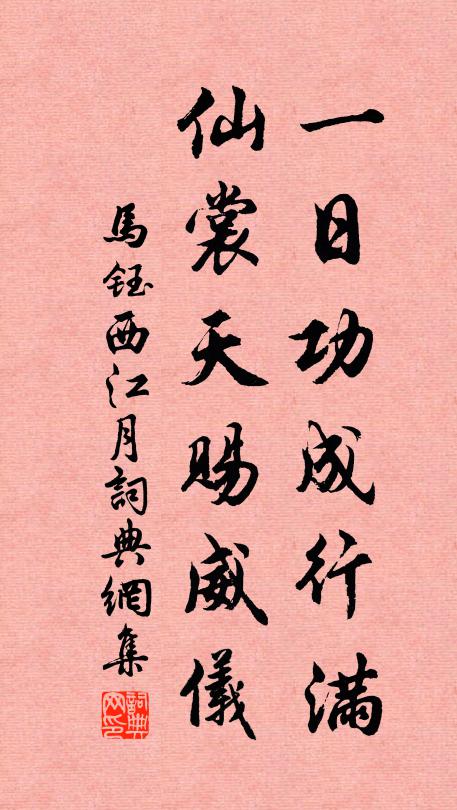 一日功成行滿
仙裳天賜威儀
馬鈺西江月詞典網集
詞典網印